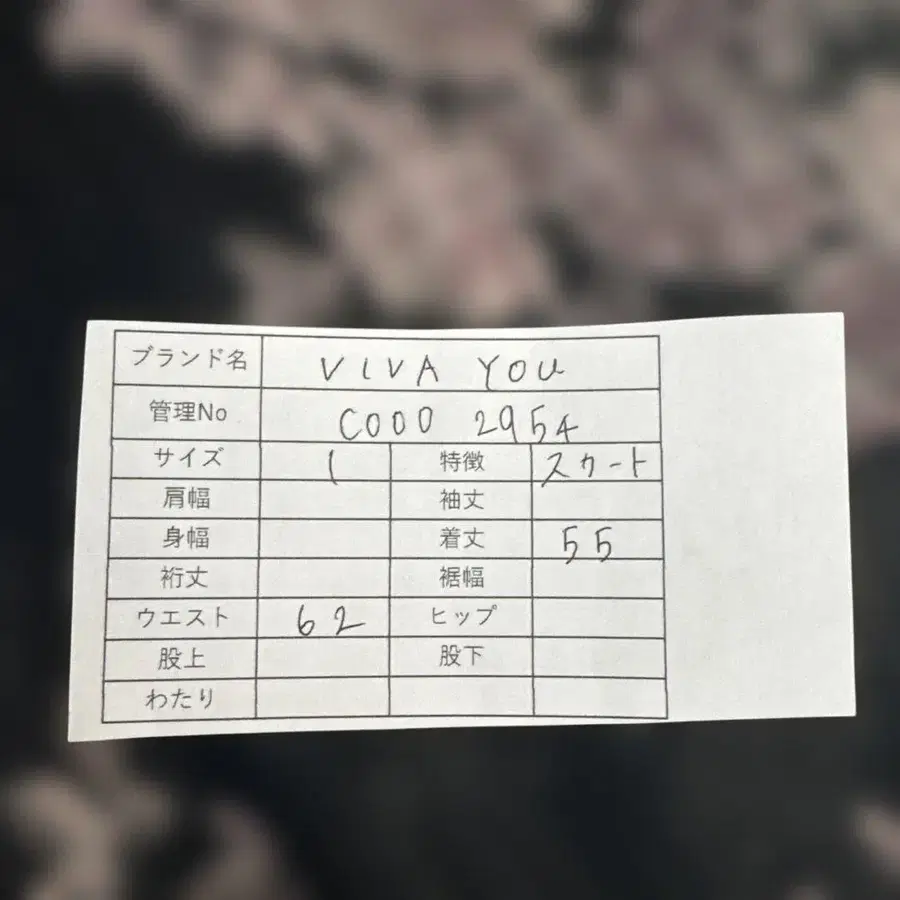 ブランド名 VIVA YOU
管理No C000 2954
サイズ 1 特徴 スカート
肩幅 袖丈
身幅 着丈 55
裄丈 裾幅
ウエスト 62 ヒップ
股上 股下
わたり